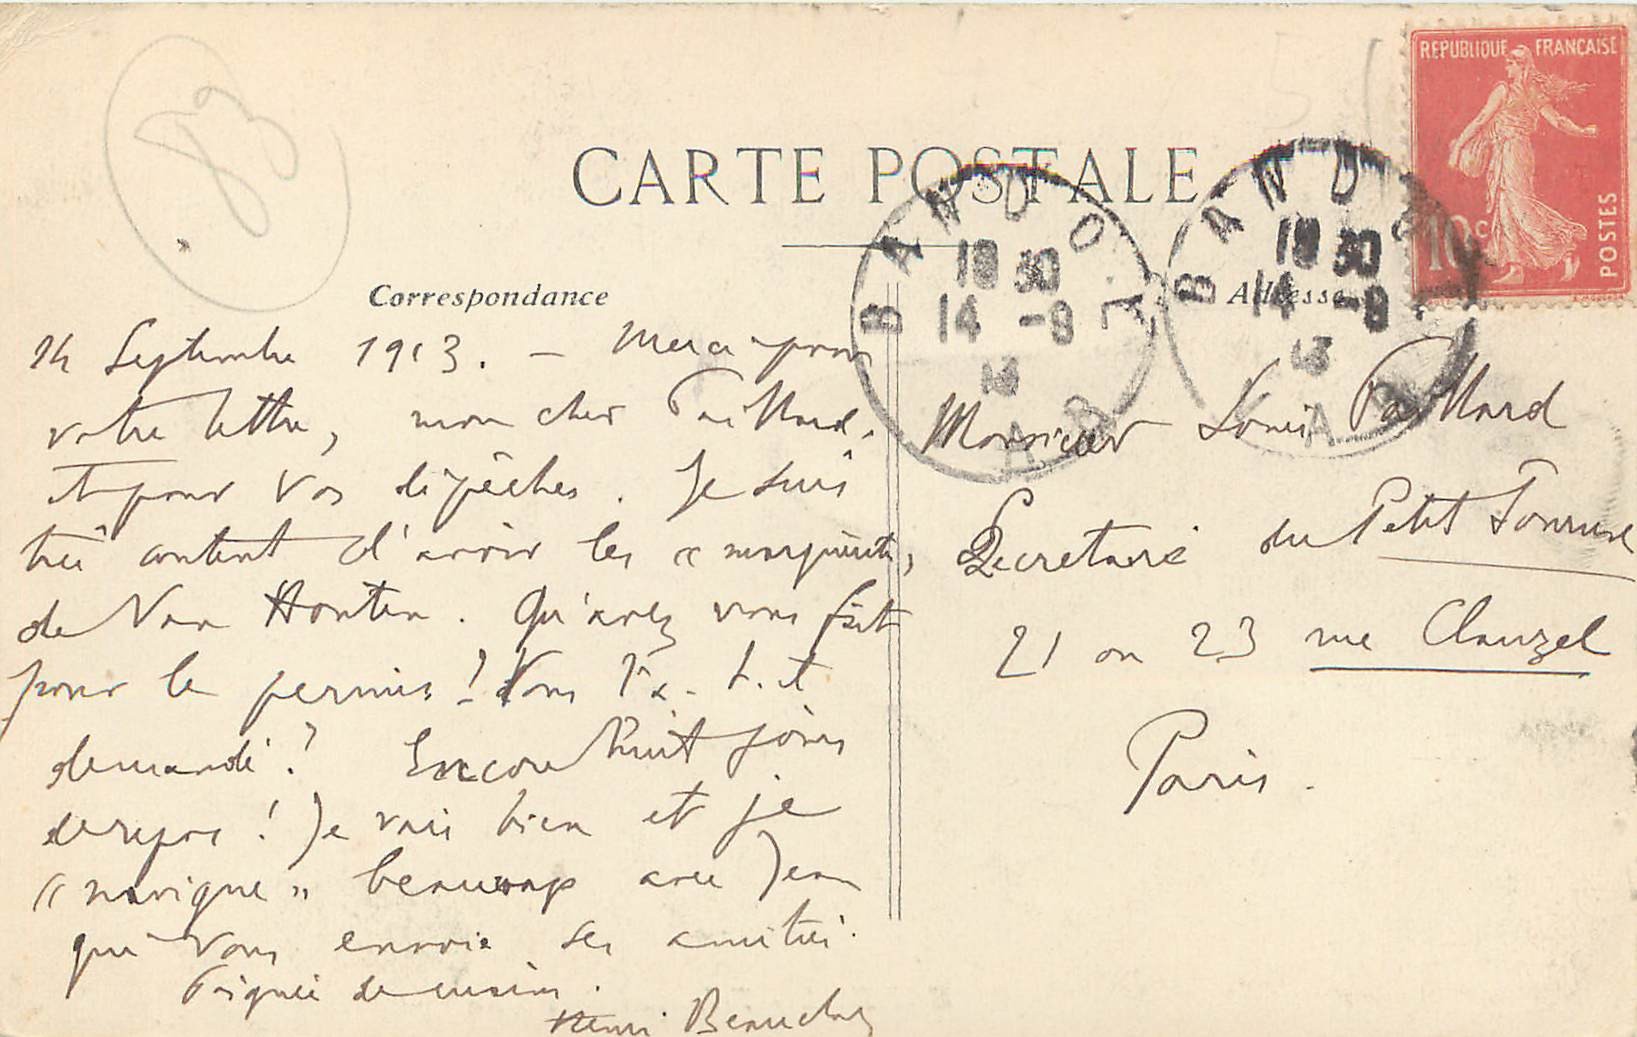 83
CARTE POSTALE
REPUBLIQUE FRANÇAISE
10c
POSTES
BANDOL
18 30
14 -9
13
VAR
BANDOL
18 30
14 -9
13
VAR
Correspondance
Adresse
14 Septembre 1913. — Merci pour
votre lettre, mon cher Paillard,
et pour vos dépêches. Je suis
très content d'avoir les «
de Van Houten. Qu'avez vous fait
pour le permis! Vous l'a-t-il
demandé? Encore huit jours
de repos! Je vais bien et je
« navigue » beaucoup avec Jean
qui vous envoie ses amitiés.
Poignée de mains.
Henri
Monsieur Louis Paillard
Secrétaire du Petit Journal
21 ou 23 rue Clauzel
Paris.